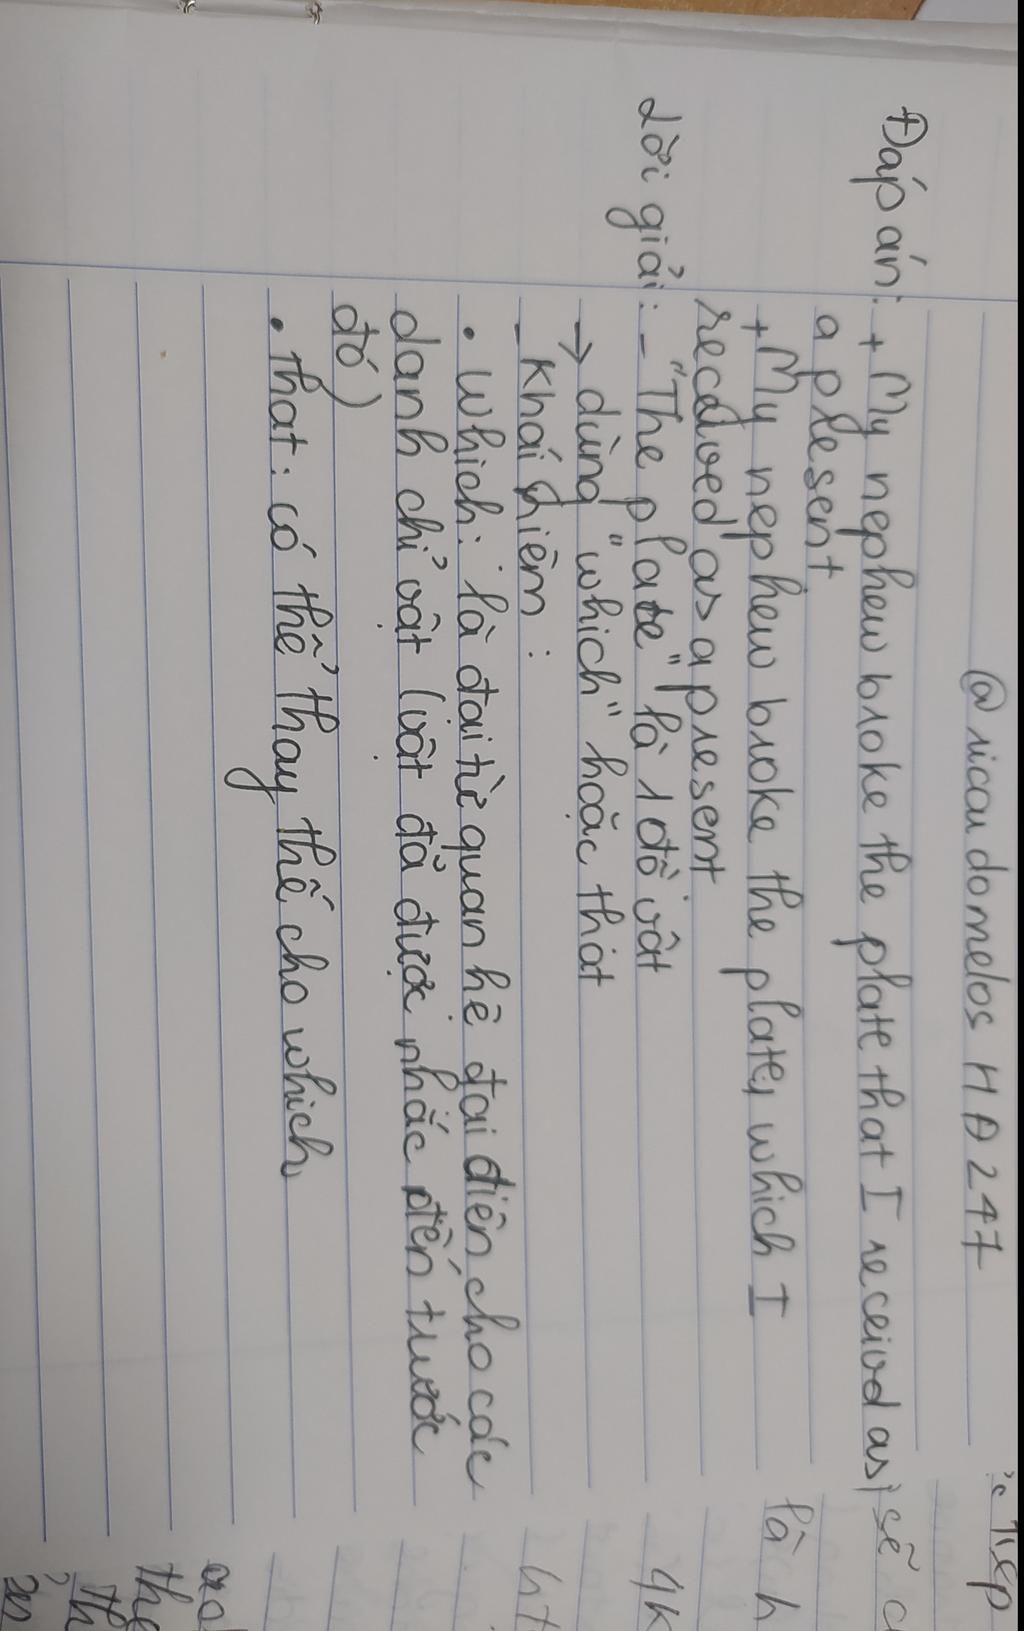 @ricardomelos HĐ247
Đáp án: + My nephew broke the plate that I receivod as
a present
+ My nephew broke the plate, which I
received as a present
Lời giải: - "The plate" là 1 đồ vật
→ dùng "which" hoặc that
- Khái niệm:
• Which: là đại từ quan hệ đại diện cho các
danh chỉ vật (vật đã được nhắc đến trước
đó)
• that: có thể thay thế cho which
sẽ
là h
the
th